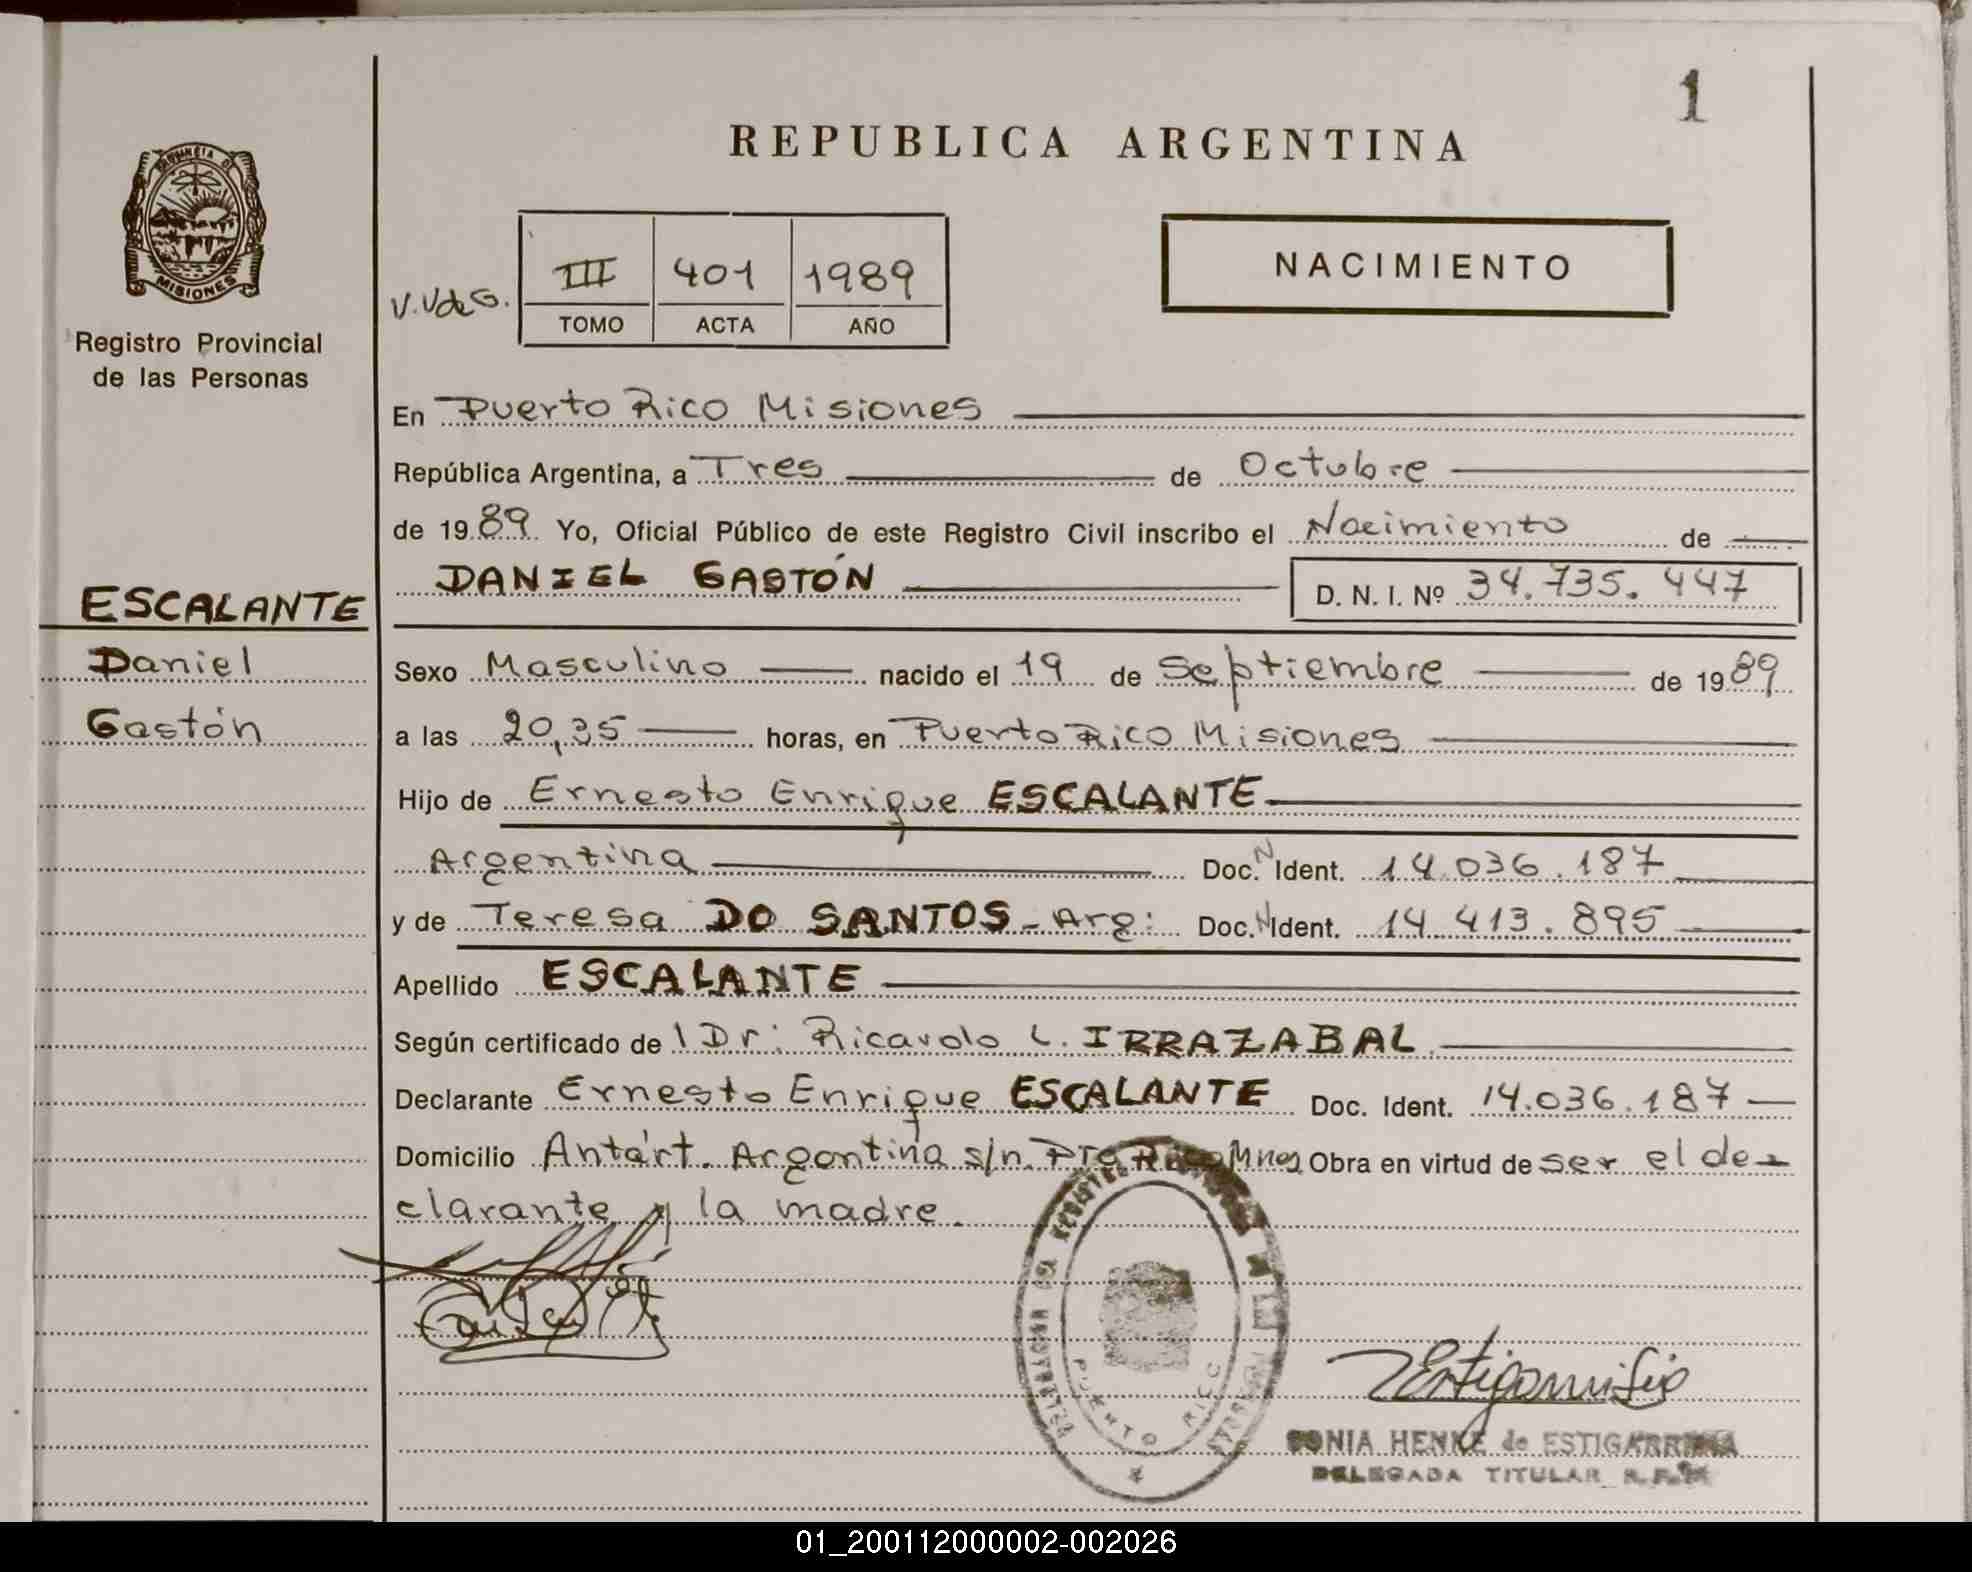 1
REPUBLICA ARGENTINA
PROVINCIA DE
MISIONES
Registro Provincial
de las Personas
V.V de G.
III 401 1989
TOMO ACTA AÑO
NACIMIENTO
En Puerto Rico Misiones
República Argentina, a Tres de Octubre
de 1989 Yo, Oficial Público de este Registro Civil inscribo el Nacimiento de
DANIEL GASTÓN D. N. I. Nº 34.735.447
ESCALANTE
Daniel
Gastón
Sexo Masculino nacido el 19 de Septiembre de 1989
a las 20,35 horas, en Puerto Rico Misiones
Hijo de Ernesto Enrique ESCALANTE
Argentina Doc. N Ident. 14.036.187
y de Teresa DO SANTOS - Arg: Doc. N Ident. 14.413.895
Apellido ESCALANTE
Según certificado de l Dr: Ricardo L. IRRAZABAL
Declarante Ernesto Enrique ESCALANTE Doc. Ident. 14.036.187
Domicilio Antárt. Argentina s/n. Pto Rico Mnes Obra en virtud de ser el de-
clarante y la madre.
PUERTO RICO
SONIA HENKE de ESTIGARRIBIA
DELEGADA TITULAR R.P.
01_200112000002-002026